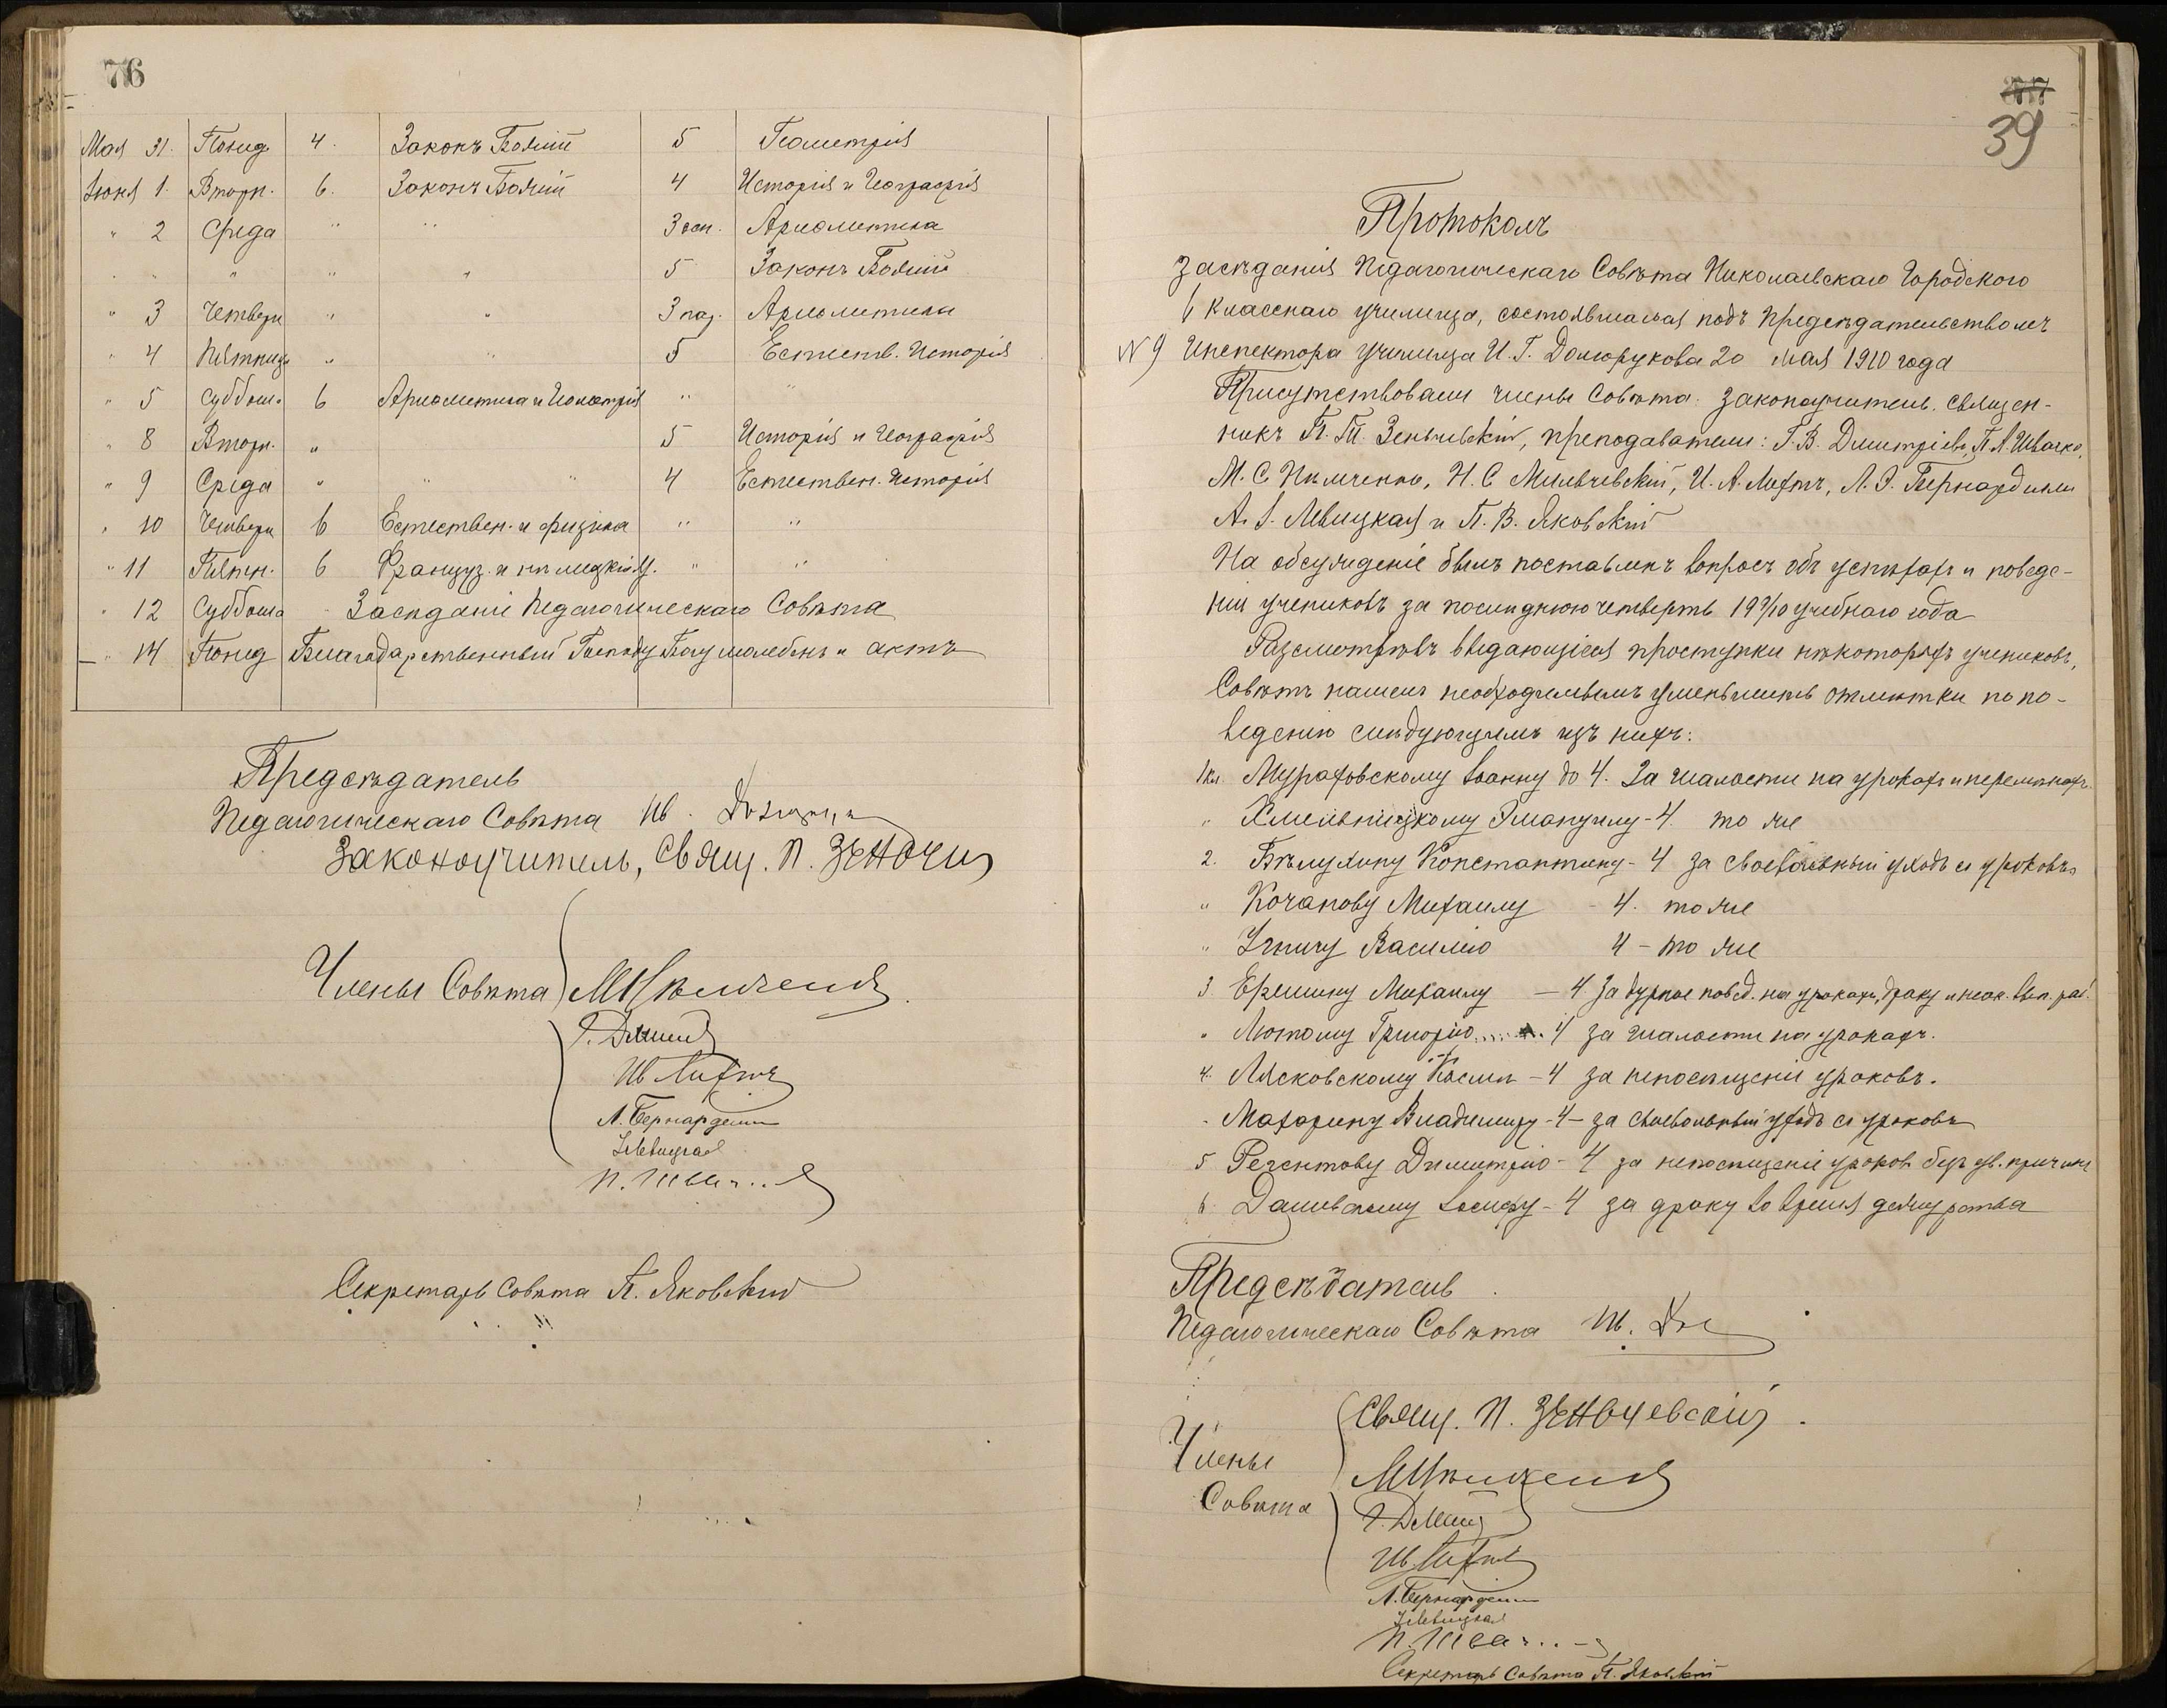 76
Мая 31. Понед. 4. Законъ Божій 5 Геометрія
Іюня 1. Вторн. 6. Законъ Божій 4 Исторія и Географія
" 2 Среда " " " 3 осн. Ариѳметика
" " " " 5 Законъ Божій
" 3 Четверг " " 3 пар. Ариѳметика
" 4 Пятница " " 5 Естеств. Исторія
" 5 Суббот. 6 Ариѳметика и Геометрія " "
" 8 Вторн. " 5 Исторія и Географія
" 9 Среда " " " 4 Естествен. Исторія
" 10 Четверг 6 Естествен. и физика " "
" 11 Пятн. 6 Француз. и нѣмецкій яз. " "
" 12 Суббота Засѣданіе Педагогическаго Совѣта
" 14 Понед Благодарственный Господу Богу молебенъ и актъ
Предсѣдатель
Педагогическаго Совѣта Ив.
Законоучитель, Свящ. П. Зеньчев
Члены Совѣта
Г. Дмит
Ив Лифтъ
Л. Бернардели
Левицкая
П.
Секретарь Совѣта П. Яковскій
77
39
Протоколъ
засѣданія Педагогическаго Совѣта Николаевскаго Городского
6 класснаго училища, состоявшагося подъ предсѣдательствомъ
№ 9 Инспектора училища И. Г. Долгорукова 20 мая 1910 года
Присутствовали члены Совѣта: законоучитель, священ-
никъ П. Т. Зеньчевскій, преподаватели: Г. В. Дмитріевъ, П. А. Швачко,
М. С. Нѣмченко, Н. С. Мильчевскій, И. А. Лифтъ, Л. Э. Бернардели
А. І. Левицкая и П. В. Яковскій
На обсужденіе былъ поставленъ вопросъ объ успѣхахъ и поведе-
ніи учениковъ за послѣднюю четверть 19 9/10 учебнаго года
Разсмотрѣвъ выдающіеся проступки нѣкоторыхъ учениковъ,
Совѣтъ нашелъ необходимымъ уменьшить отмѣтки по по-
веденію слѣдующимъ изъ нихъ:
1 кл. Мурафовскому Іоанну до 4. За шалости на урокахъ и перемѣнахъ
" Хмельницкому Эмануилу - 4. то же
2. Бѣлухину Константину - 4 за своевольный уходъ съ уроковъ
" Кочанову Михаилу - 4. то же
" Угничу Василію 4 - то же
3 Ерешину Михаилу — 4 За дурное повед. на урокахъ, драку и неок. вып. раб.
" Лютому Григорію ..... 4 за шалости на урокахъ.
4. Лясковскому Касьян - 4 за непосѣщеніе уроковъ.
" Махорину Владимиру - 4 - за своевольный уходъ съ уроковъ
5 Регентову Димитрію - 4 за непосѣщеніе уроков. безъ ув. причины
6. Данивскому Іосифу - 4 за драку во время дежурства
Предсѣдатель
Педагогическаго Совѣта Ив.
Члены
Совѣта
Свящ. П. Зеньчевскій.
Г. Дмит
Ив Лифтъ
Л. Бернардели
Левицкая
П.
Секретарь Совѣта П. Яковскій